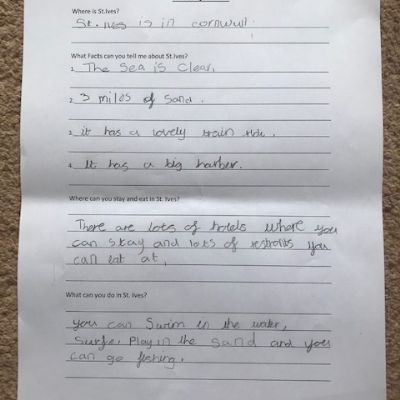 Where is St.Ives?
St. Ives is in cornwull.
What Facts can you tell me about St.Ives?
1. The Sea is Clear.
2. 3 miles of Sand.
3. it has a lovely train ride.
4. It has a big harber.
Where can you stay and eat in St. Ives?
There are lots of hotels where you
can stay and lots of restrolts you
can eat at.
What can you do in St. Ives?
you can Swim in the water,
Surfe, Play in the Sand and you
can go fishing.